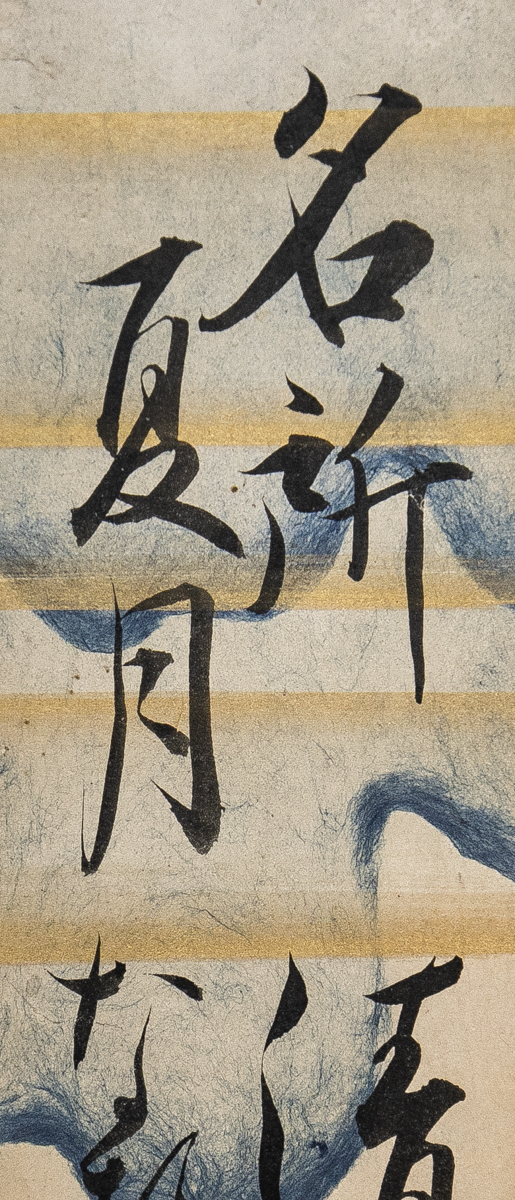 名所
夏月
清
な